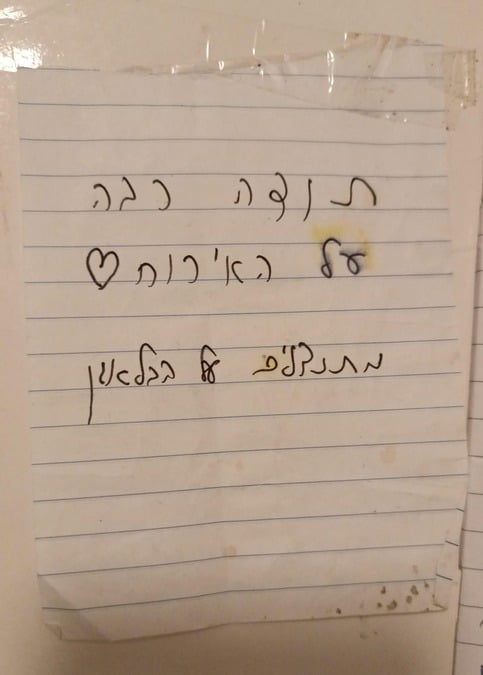 תודה רבה
על האירוח ♡
מתנצלים על הבלאגן